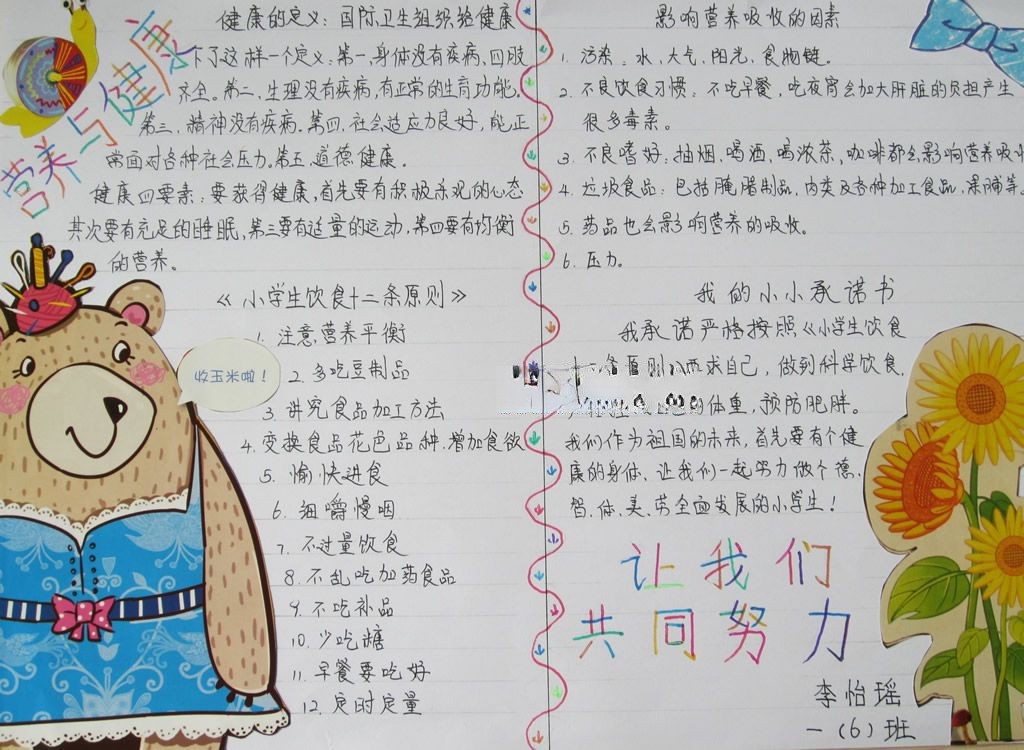 营养与健康
健康的定义：国际卫生组织给健康
下了这样一个定义：第一，身体没有疾病，四肢
齐全。第二、生理没有疾病，有正常的生育功能。
第三、精神没有疾病。第四、社会适应力良好，能正
常面对各种社会压力。第五、道德健康。
健康四要素：要获得健康，首先要有积极乐观的心态
其次要有充足的睡眠，第三要有适量的运动，第四要有均衡
的营养。
《小学生饮食十二条原则》
1. 注意营养平衡
收玉米啦！
2. 多吃豆制品
3. 讲究食品加工方法
4. 变换食品花色品种，增加食欲
5. 愉快进食
6. 细嚼慢咽
7. 不过量饮食
8. 不乱吃加药食品
9. 不吃补品
10. 少吃糖
11. 早餐要吃好
12. 定时定量
影响营养吸收的因素
1. 污染：水，大气，阳光，食物链。
2. 不良饮食习惯：不吃早餐，吃夜宵会加大肝脏的负担产生
很多毒素。
3. 不良嗜好：抽烟、喝酒、喝浓茶，咖啡都会影响营养吸
4. 垃圾食品：包括腌腊制品，肉类及各种加工食品，果脯等。
5. 药品也会影响营养的吸收。
6. 压力。
我的小小承诺书
我承诺严格按照《小学生饮食
十二条原则》要求自己，做到科学饮食，
的体重，预防肥胖。
我们作为祖国的未来，首先要有个健
康的身体，让我们一起努力做个德、
智、体、美、劳全面发展的小学生！
让我们
共同努力
李怡瑶
一（6）班